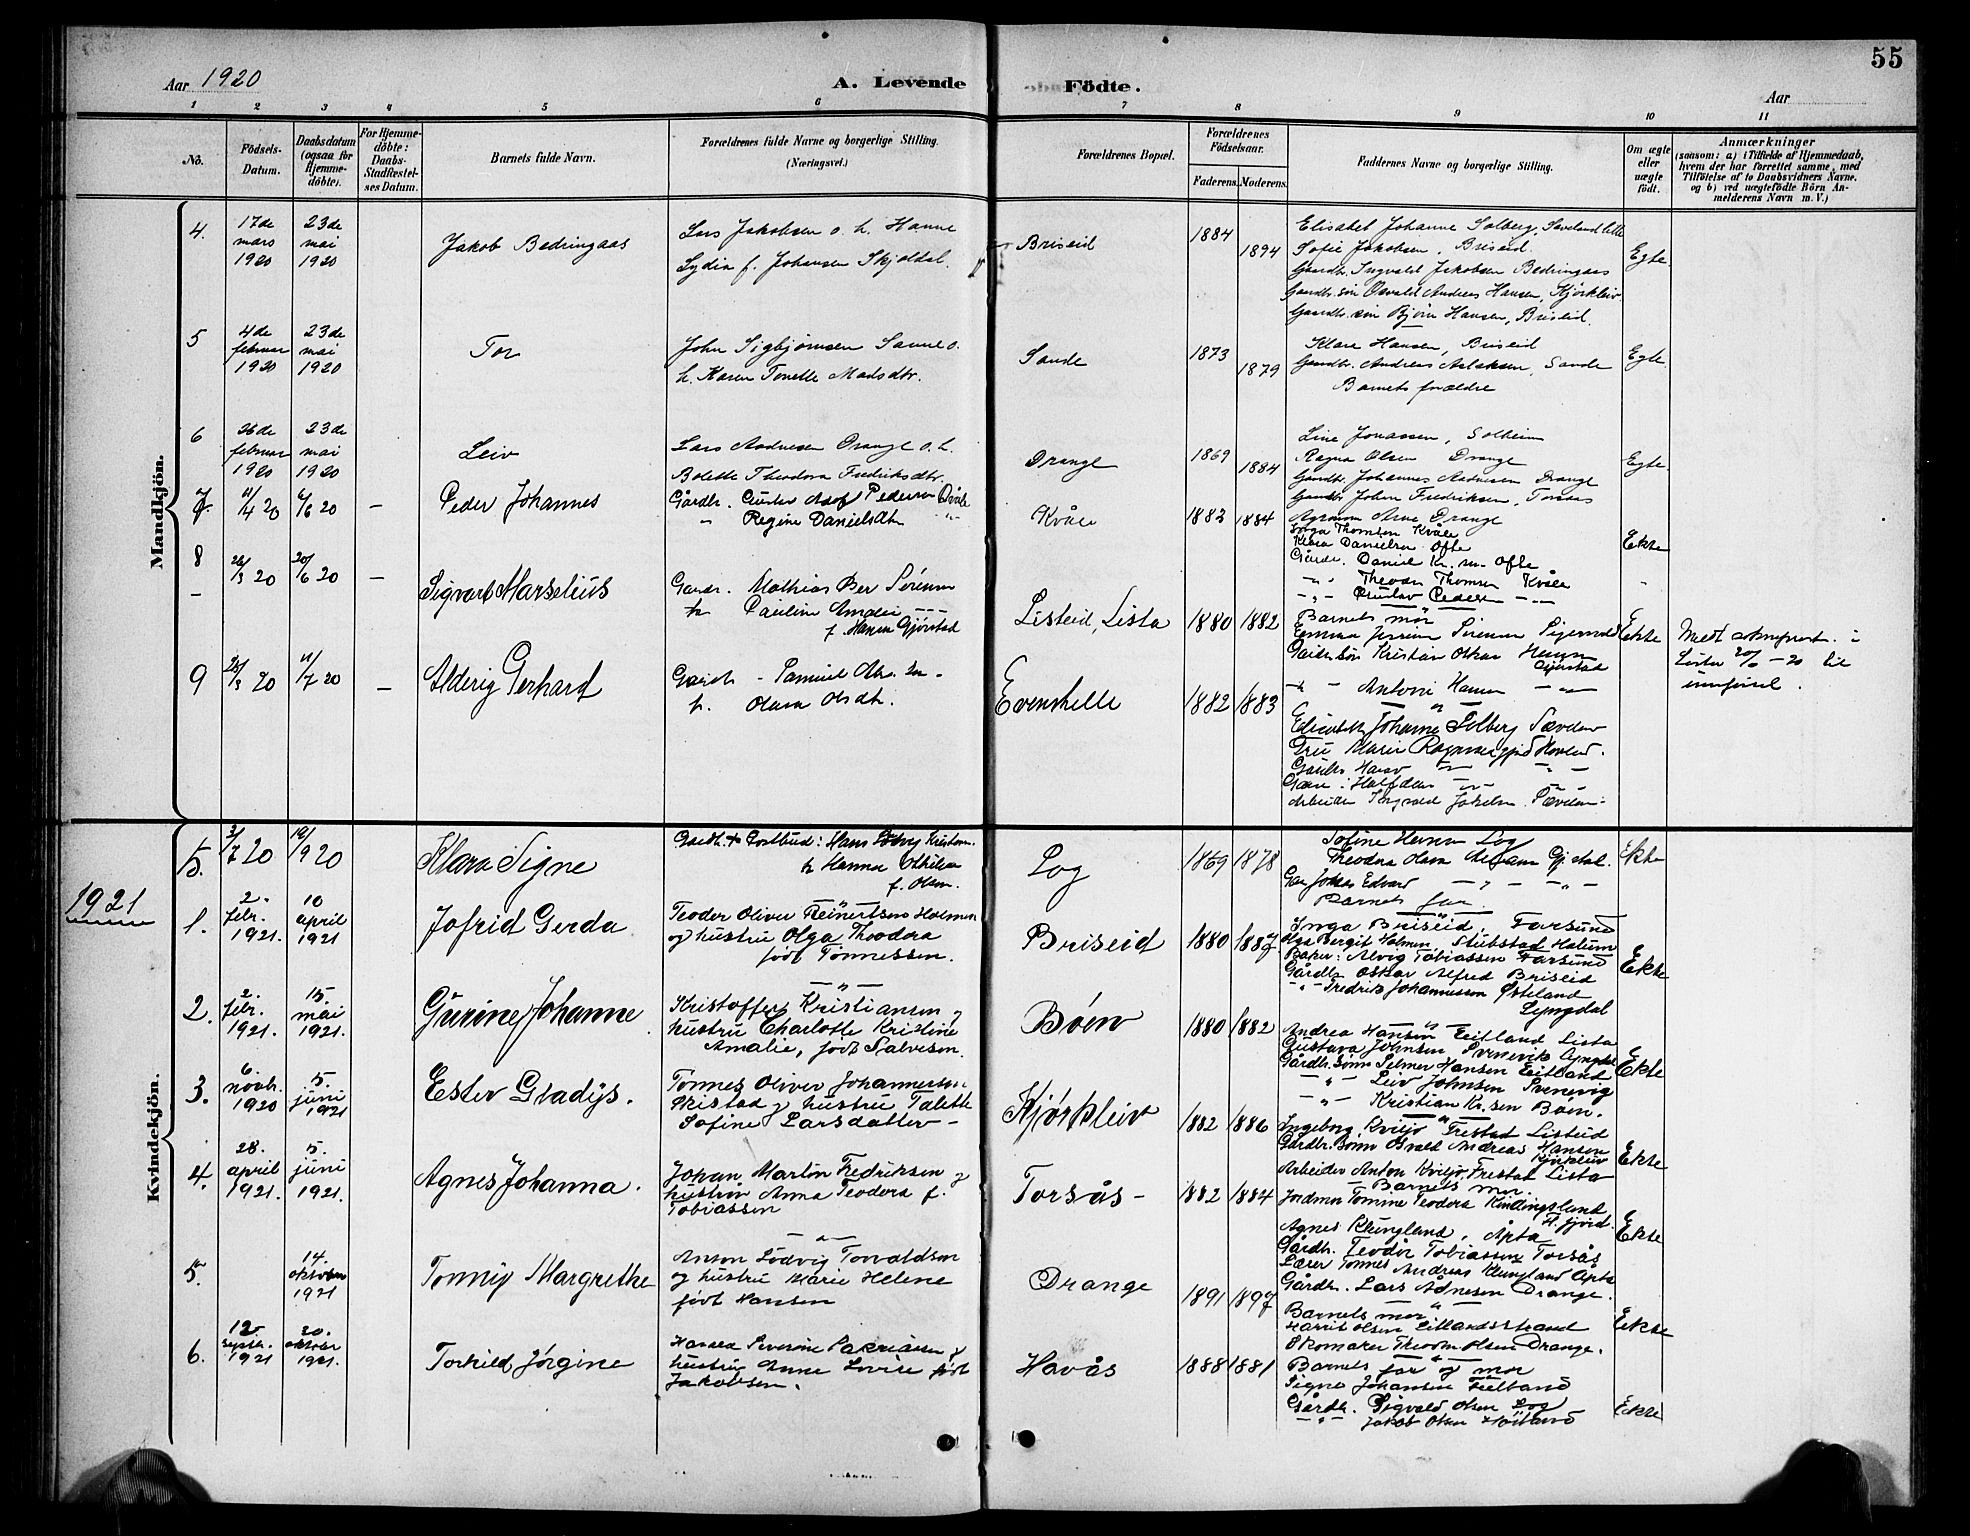 55
Aar 1920
A. Levende Födte.
Aar
1 2 3 4 5 6 7 8 9 10 11
No.
Födsels-Datum.
Daabsdatum (ogsaa for Hjemmedöbte).
For Hjemmedöbte: Daabs-Stadfæstelses Datum.
Barnets fulde Navn.
Forældrenes fulde Navne og borgerlige Stilling.
(Næringsvei.)
Forældrenes Bopæl.
Forældrenes Födselsaar.
Faderens. Moderens.
Faddernes Navne og borgerlige Stilling.
Om ægte eller uægte födt.
Anmærkninger
(saasom: a) i Tilfælde af Hjemmedaab,
hvem der har forrettet samme, med
Tilföielse af to Daabsvidners Navne,
og b) ved uægtefödte Börn Anmelderens Navn m. V.)
Mandkjön.
4. 17de mars 1920 23de mai 1920 Jakob Bedringaas
Lars Jakobsen o. h. Hanne
Lydia f. Johansen Skjoldal.
Briseid 1884 1894
Elisabet Johanne Solberg,
Sofie Jakobsen, Briseid.
Gaardbr. Ingvald Jakobsen Bedringaas
Gaardbr. søn Osvald Andreas Hansen, Kjørkleiv
Gaardbr. søn Bjørn Hansen, Briseid.
Egte.
5 4de februar 1920 23de mai 1920 Tor
John Sigbjørnsen Sanne o.
h. Karen Tonette Madsdtr.
Sande 1873 1879
Klara Hansen, Briseid
Gaardbr. Andreas Aslaksen, Sande
Barnets forældre
Egte.
6 26de februar 1920 23de mai 1920 Leiv
Lars Aadnesen Drange o. h.
Bolette Theodora Fredriksdtr.
Drange 1869 1884
Line Jonassen, Solheim
Ragna Olsen Drange
Gaardbr. Johannes Aadnesen Drange
Gaardbr. John Fredriksen, Torsaas
Agronom Arne Drange
Egte.
7. 11/4 20 6/6 20 – Peder Johannes
Gårdbr. Gustav Adolf Pedersen
" Regine Danielsdtr.
Kvåle 1883 1884
Inga Thomsen Kvåle
Klara Danielsen Ofte
Gårdbr. Daniel Kr.sen Ofte
–"– Theodor Thomsen Kvåle
–"– Gustav Pedersen –"–
Ekte
8 26/3 20 20/6 20 – Sigvart Marselius
Gardr. Mathias Ber Sørensen
h. Pauline Amalie
f. Hansen Gjørstad
Listeid, Lista 1880 1882
Barnets mor
Emma Sørensen
Gårdbr.søn Kristian Oskar Hansen Gjørstad
–"– Antoni Hansen –"–
Ekte
Meldt sokneprest. i
Lista 20/6 –20 til
innførsel.
9 28/3 20 11/7 20 – Alderig Gerhard
Gardb. Samuel
h. Olava Olsdtr.
Evenshelle 1882 1883
Elisabeth Johanne Solberg
Fru Marie
Gårdbr. Harav
Halfdan
Arbeider Ingvald
Kvindekjön.
5. 3/7 20 19/9 20 Klara Signe
Gardb. & Postbud: Hans Kristensen.
h. Hanna Othilia
f. Olsen.
Log 1869 1878
Sofine Log
Theodora Olava
Edvard
Barnets far.
Ekte
1921
1. 2. febr. 1921. 10 april 1921 Jofrid Gerda
Teodor Oliver Reinertsen Holmen
og hustru Olga Theodora
født Tønnessen.
Briseid 1880 1887
Inga Briseid, Farsund
Olga Bergit Holmen, Stubstad Halum
Baker: Alvig Tobiassen Farsund
Gårdbr. Oskar Alfred Briseid
–"– Fredrik Johannessen Østeland Lyngdal
Ekte
2. 2. febr. 1921. 15. mai 1921. Gurine Johanne
Kristoffer Kristiansen og
hustru Charlotte Kristine
Amalie, født Salvesen.
Bøen 1880 1882
Andrea Hansen Eitland Lista
Gustava Johnsen Svenevik Lyngdal
Gårdbr. sønn Selmer Hansen Eitland
–"– Leiv Johnsen Svenevig
–"– Kristian Kr.sen Bøen.
Ekte
3. 6. novbr. 1920 5. juni 1921 Ester Gladys.
Tønnes Oliver Johannessen
Skistad og hustru Talette
Sofine Larsdatter –
Kjørkleiv 1882 1886
Ingeborg Kviljo, Frestad Listeid
Gårdbr. Sønn Osvald Andreas Hansen Kjørkleiv
Arbeider Anton Kviljo, Frestad Lista
Barnets mor
Ekte
4. 28. april 1921. 5. juni 1921. Agnes Johanna.
Johan Martin Fredriksen og
hustru Anna Teodora f.
Tobiassen
Torsås – 1882 1884
Jordmor Tomine Teodora Kindingsland H. fjord.
Agnes Klungland, Apta
Gårdbr. Teodor Tobiassen Torsås
Lærer Tønnes Andreas Klungland Apta
Gårdbr. Lars Ådnesen Drange.
Ekte
5. 14. oktober 1921 Tonny Margrethe
Anton Lødvig Torvaldsen
og hustru Marie Helene
født Hansen
Drange 1891 1897
Barnets mor
Harrit Olsen Eitlandsstrand
Skomaker Theodor Olsen Drange.
Ekte
6. 12 septbr. 1921 20. oktober 1921. Torhild Jørgine
Severine Sakriasen &
hustru Anne Lovise født
Jakobsen.
Havås 1888 1881
Barnets far og mor
Signe Johansen
Gårdbr. Sigvald Olsen Log
–"– Jakob Olsen Høiland
Ekte